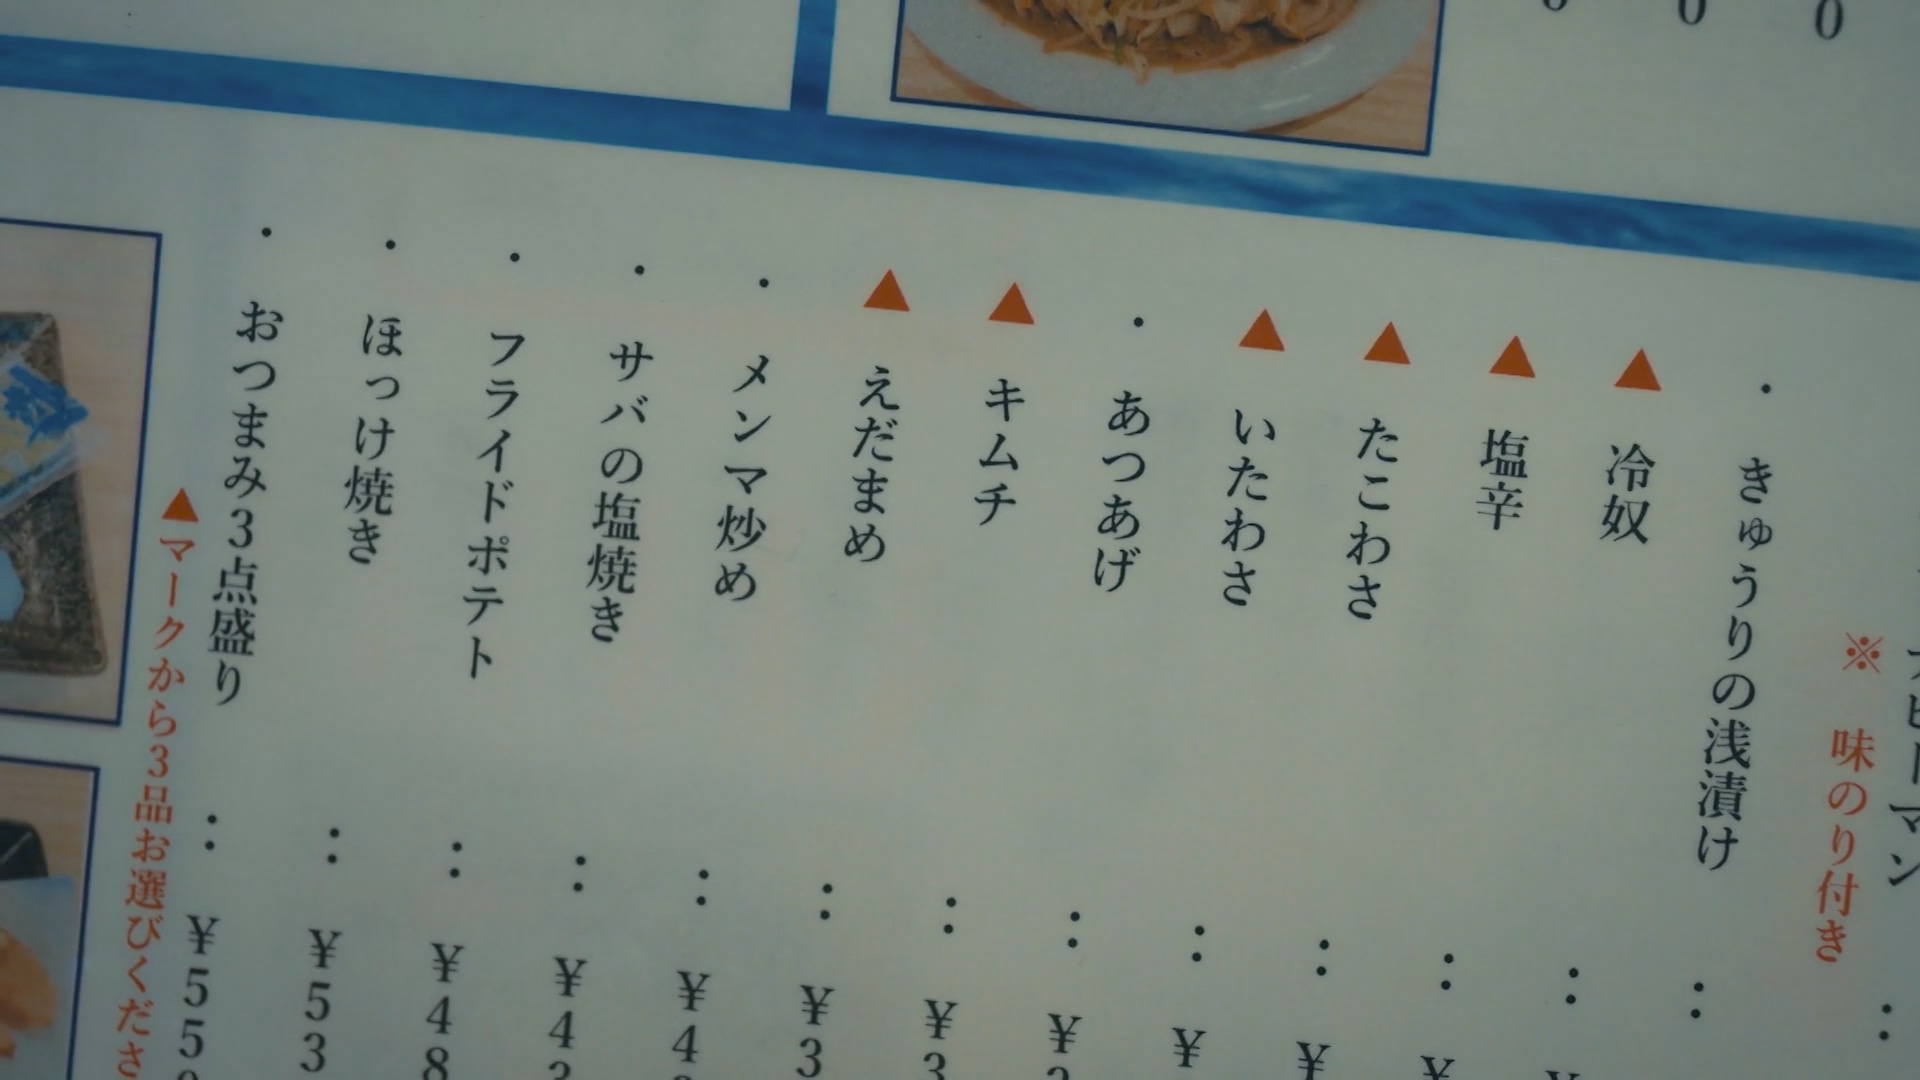 ※ 味のり付き
・ きゅうりの浅漬け :
▲ 冷奴 : ¥
▲ 塩辛 : ¥
▲ たこわさ : ¥
▲ いたわさ : ¥
・ あつあげ : ¥
▲ キムチ : ¥3
▲ えだまめ : ¥3
・ メンマ炒め : ¥4
・ サバの塩焼き : ¥43
・ フライドポテト : ¥48
・ ほっけ焼き : ¥53
・ おつまみ3点盛り : ¥550
▲マークから3品お選びくださ